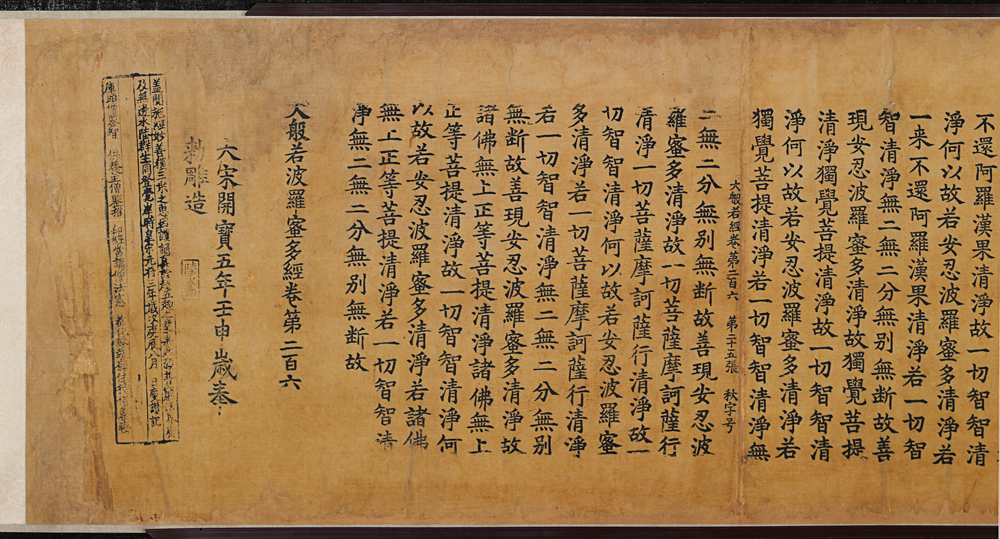 不還阿羅漢果清淨故一切智智清
淨何以故若安忍波羅蜜多清淨若
一來不還阿羅漢果清淨若一切智
智清淨無二無二分無別無斷故善
現安忍波羅蜜多清淨故獨覺菩提
清淨獨覺菩提清淨故一切智智清
淨何以故若安忍波羅蜜多清淨若
獨覺菩提清淨若一切智智清淨無
大般若經卷第二百六 第二十五張 秋字号
二無二分無別無斷故善現安忍波
羅蜜多清淨故一切菩薩摩訶薩行
清淨一切菩薩摩訶薩行清淨故一
切智智清淨何以故若安忍波羅蜜
多清淨若一切菩薩摩訶薩行清淨
若一切智智清淨無二無二分無別
無斷故善現安忍波羅蜜多清淨故
諸佛無上正等菩提清淨諸佛無上
正等菩提清淨故一切智智清淨何
以故若安忍波羅蜜多清淨若諸佛
無上正等菩提清淨若一切智智清
淨無二無二分無別無斷故
大般若波羅蜜多經卷第二百六
大宋開寶五年壬申歲奉
勑雕造
蓋聞施經妙善獲三
及無邊水陸群生同登覺岸時皇宋大觀二年歲次戊子十月 日畢謹記
庫頭僧 智 供養主僧 招 印經當講僧法